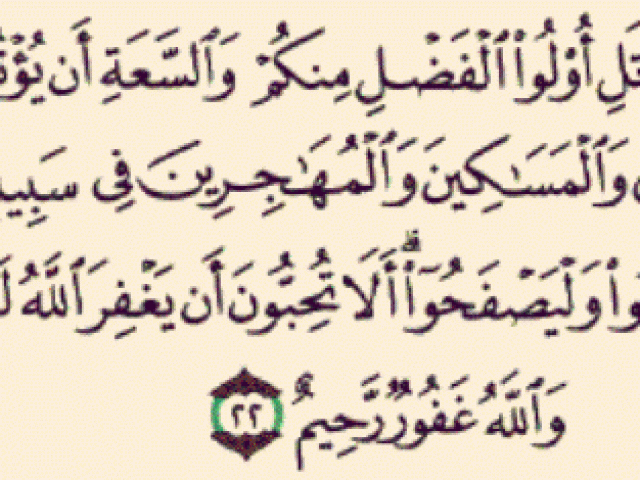 أُو۟لُوا۟ ٱلْفَضْلِ مِنكُمْ وَٱلسَّعَةِ أَن
وَٱلْمَسَـٰكِينَ وَٱلْمُهَـٰجِرِينَ فِى
وَلْيَصْفَحُوٓا۟ ۗ أَلَا تُحِبُّونَ أَن يَغْفِرَ ٱللَّهُ
وَٱللَّهُ غَفُورٌ رَّحِيمٌ ٢٢